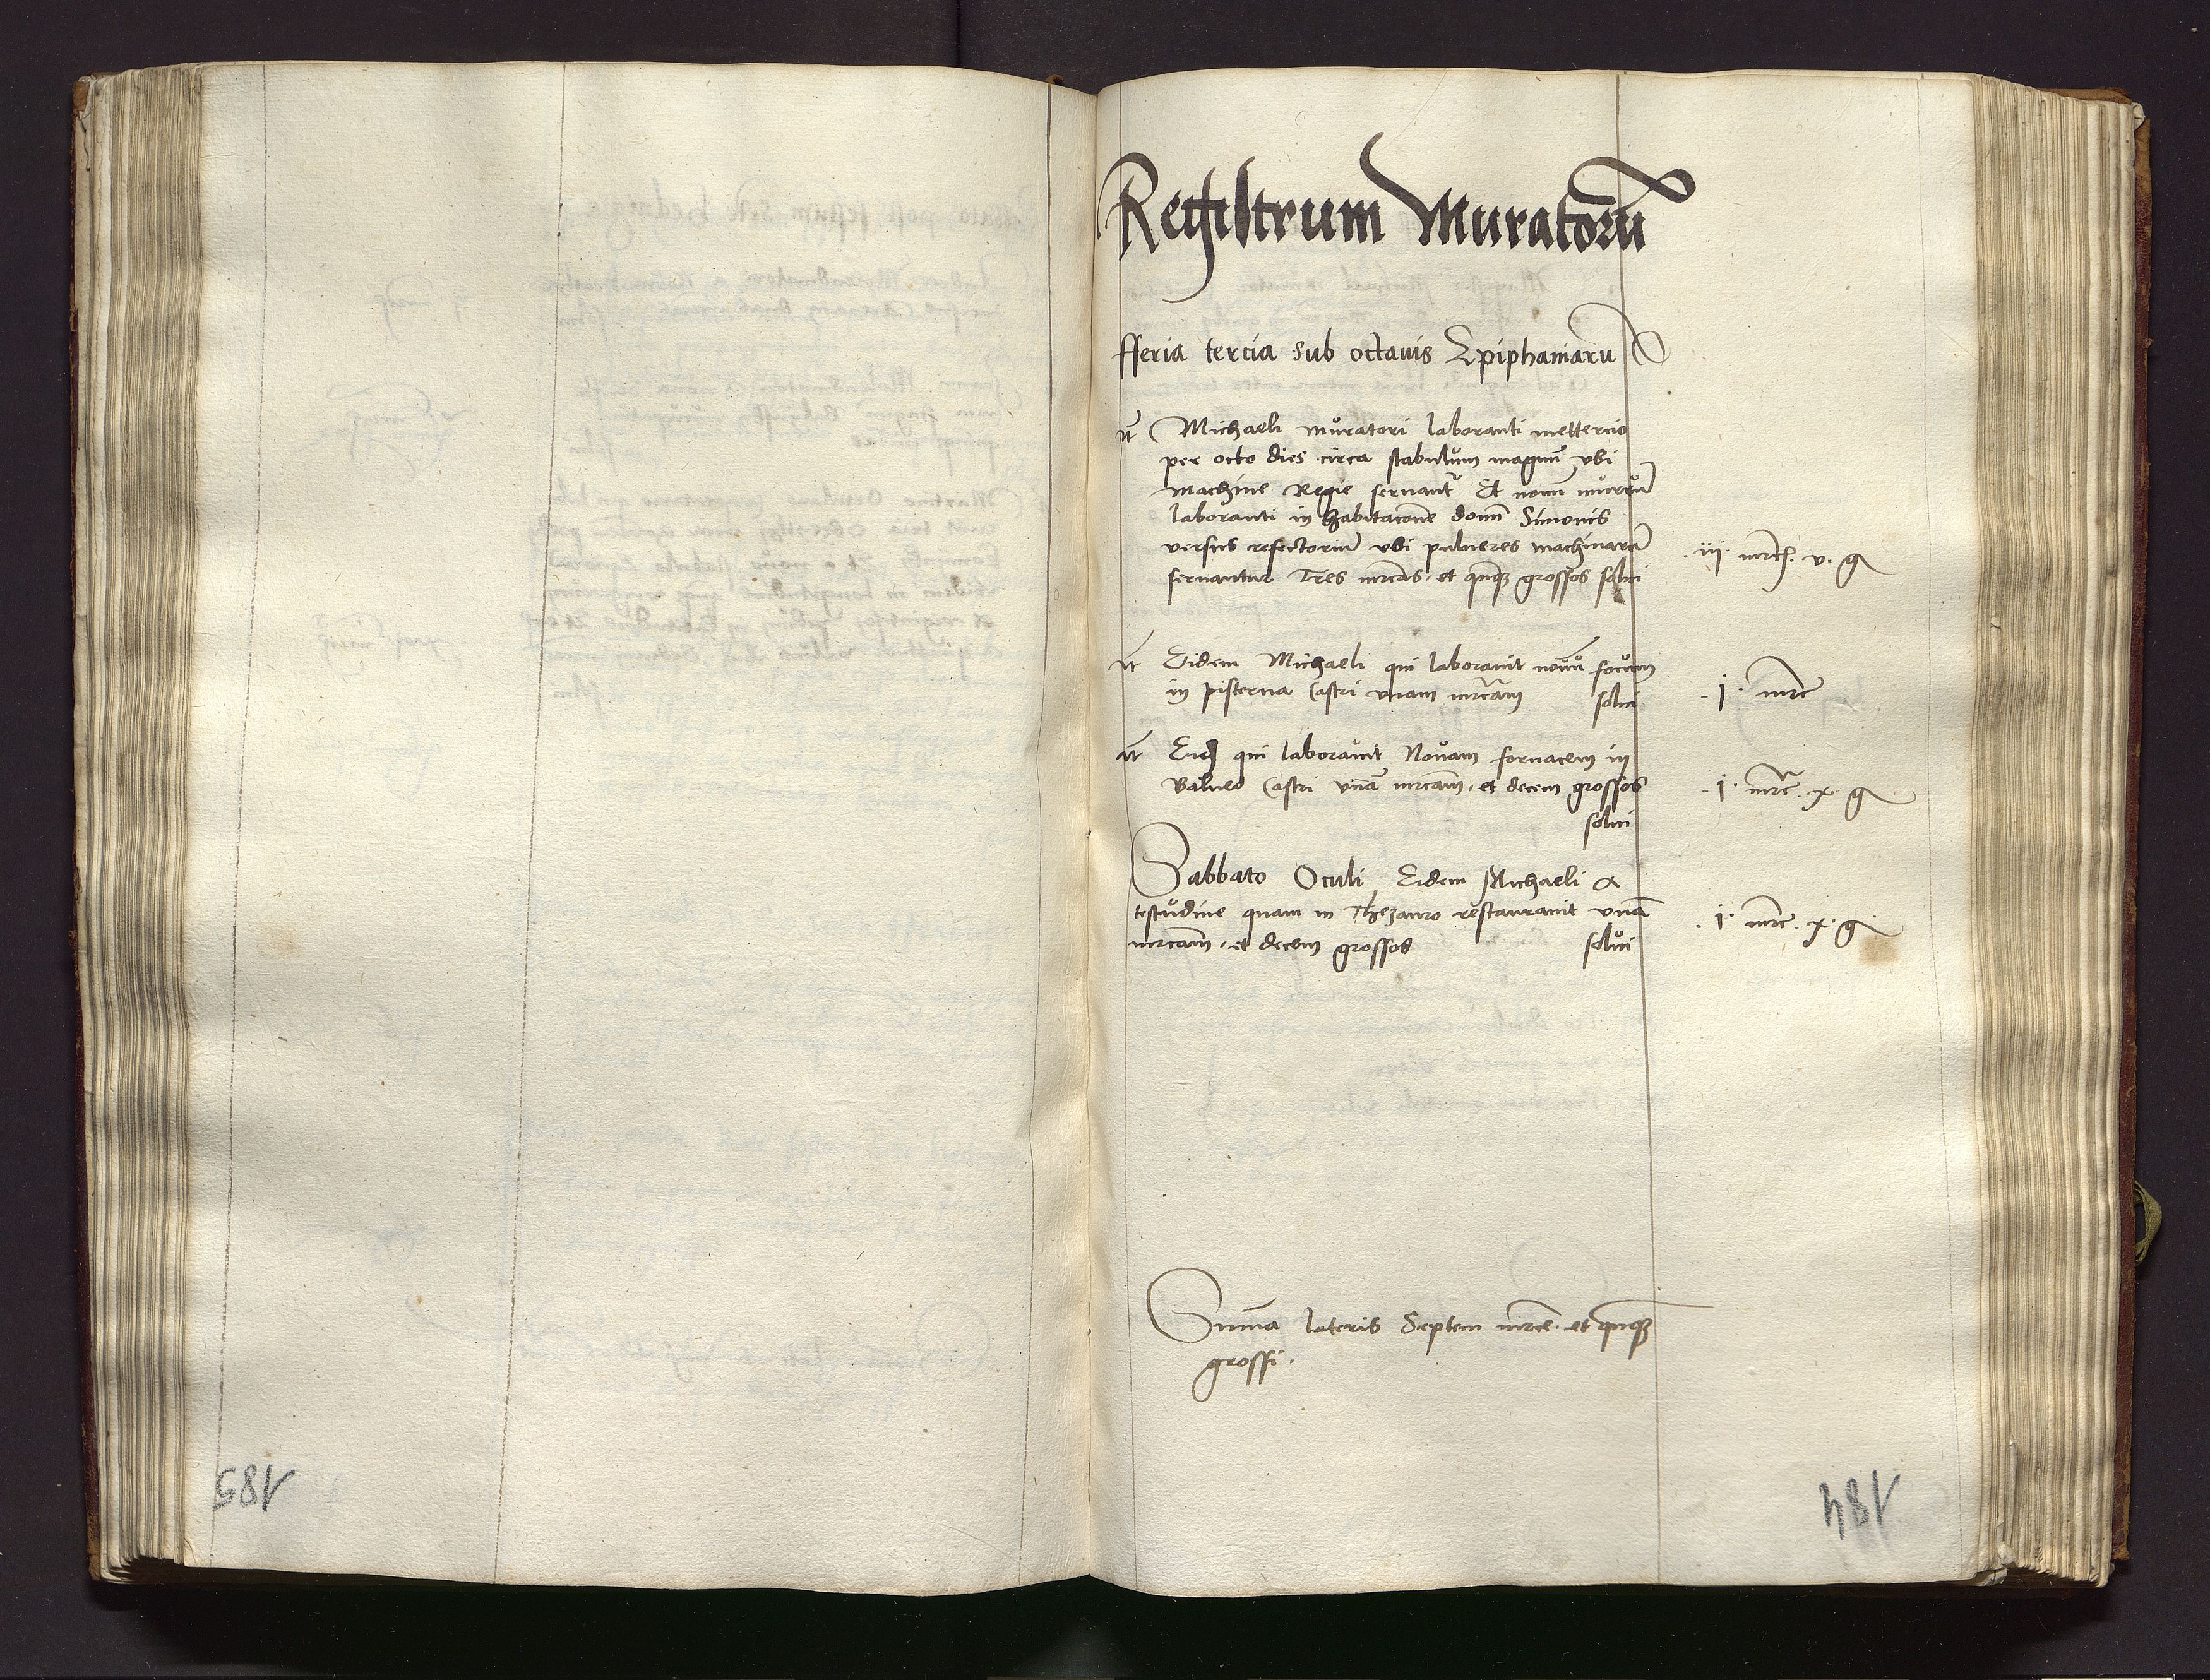 Registrum Muratorũ
fferia tercia sub octauis Epiphaniarũ
It Michaeli můratori laboranti mettercio
per octo dies circa stabulum magnũ vbi
machine Regie seruantr Et nouũ murũ
laboranti in habitacone domi Simonis
versus refectoriũ vbi pulueres machinarũ
seruantur Tres mrcas et quĩqz grossos solui
iij mrce v. g
It Eidem Michaeli qui laborauit nouũ focum
in pisterna Castri vnam mrcam solui
j mrc
It Eidẽ qui laborauit Nouam fornacem in
Balneo Castri vnã mrcam et decem grossos
solui
j mrc x g
Sabbato Oculi Eidem Michaeli a
testudine quam in Thezauro restaurauit vnã
mrcam et decem grossos solui
j mrc x g
Suma lateris Septem mrce et quĩqz
grossi
185
184